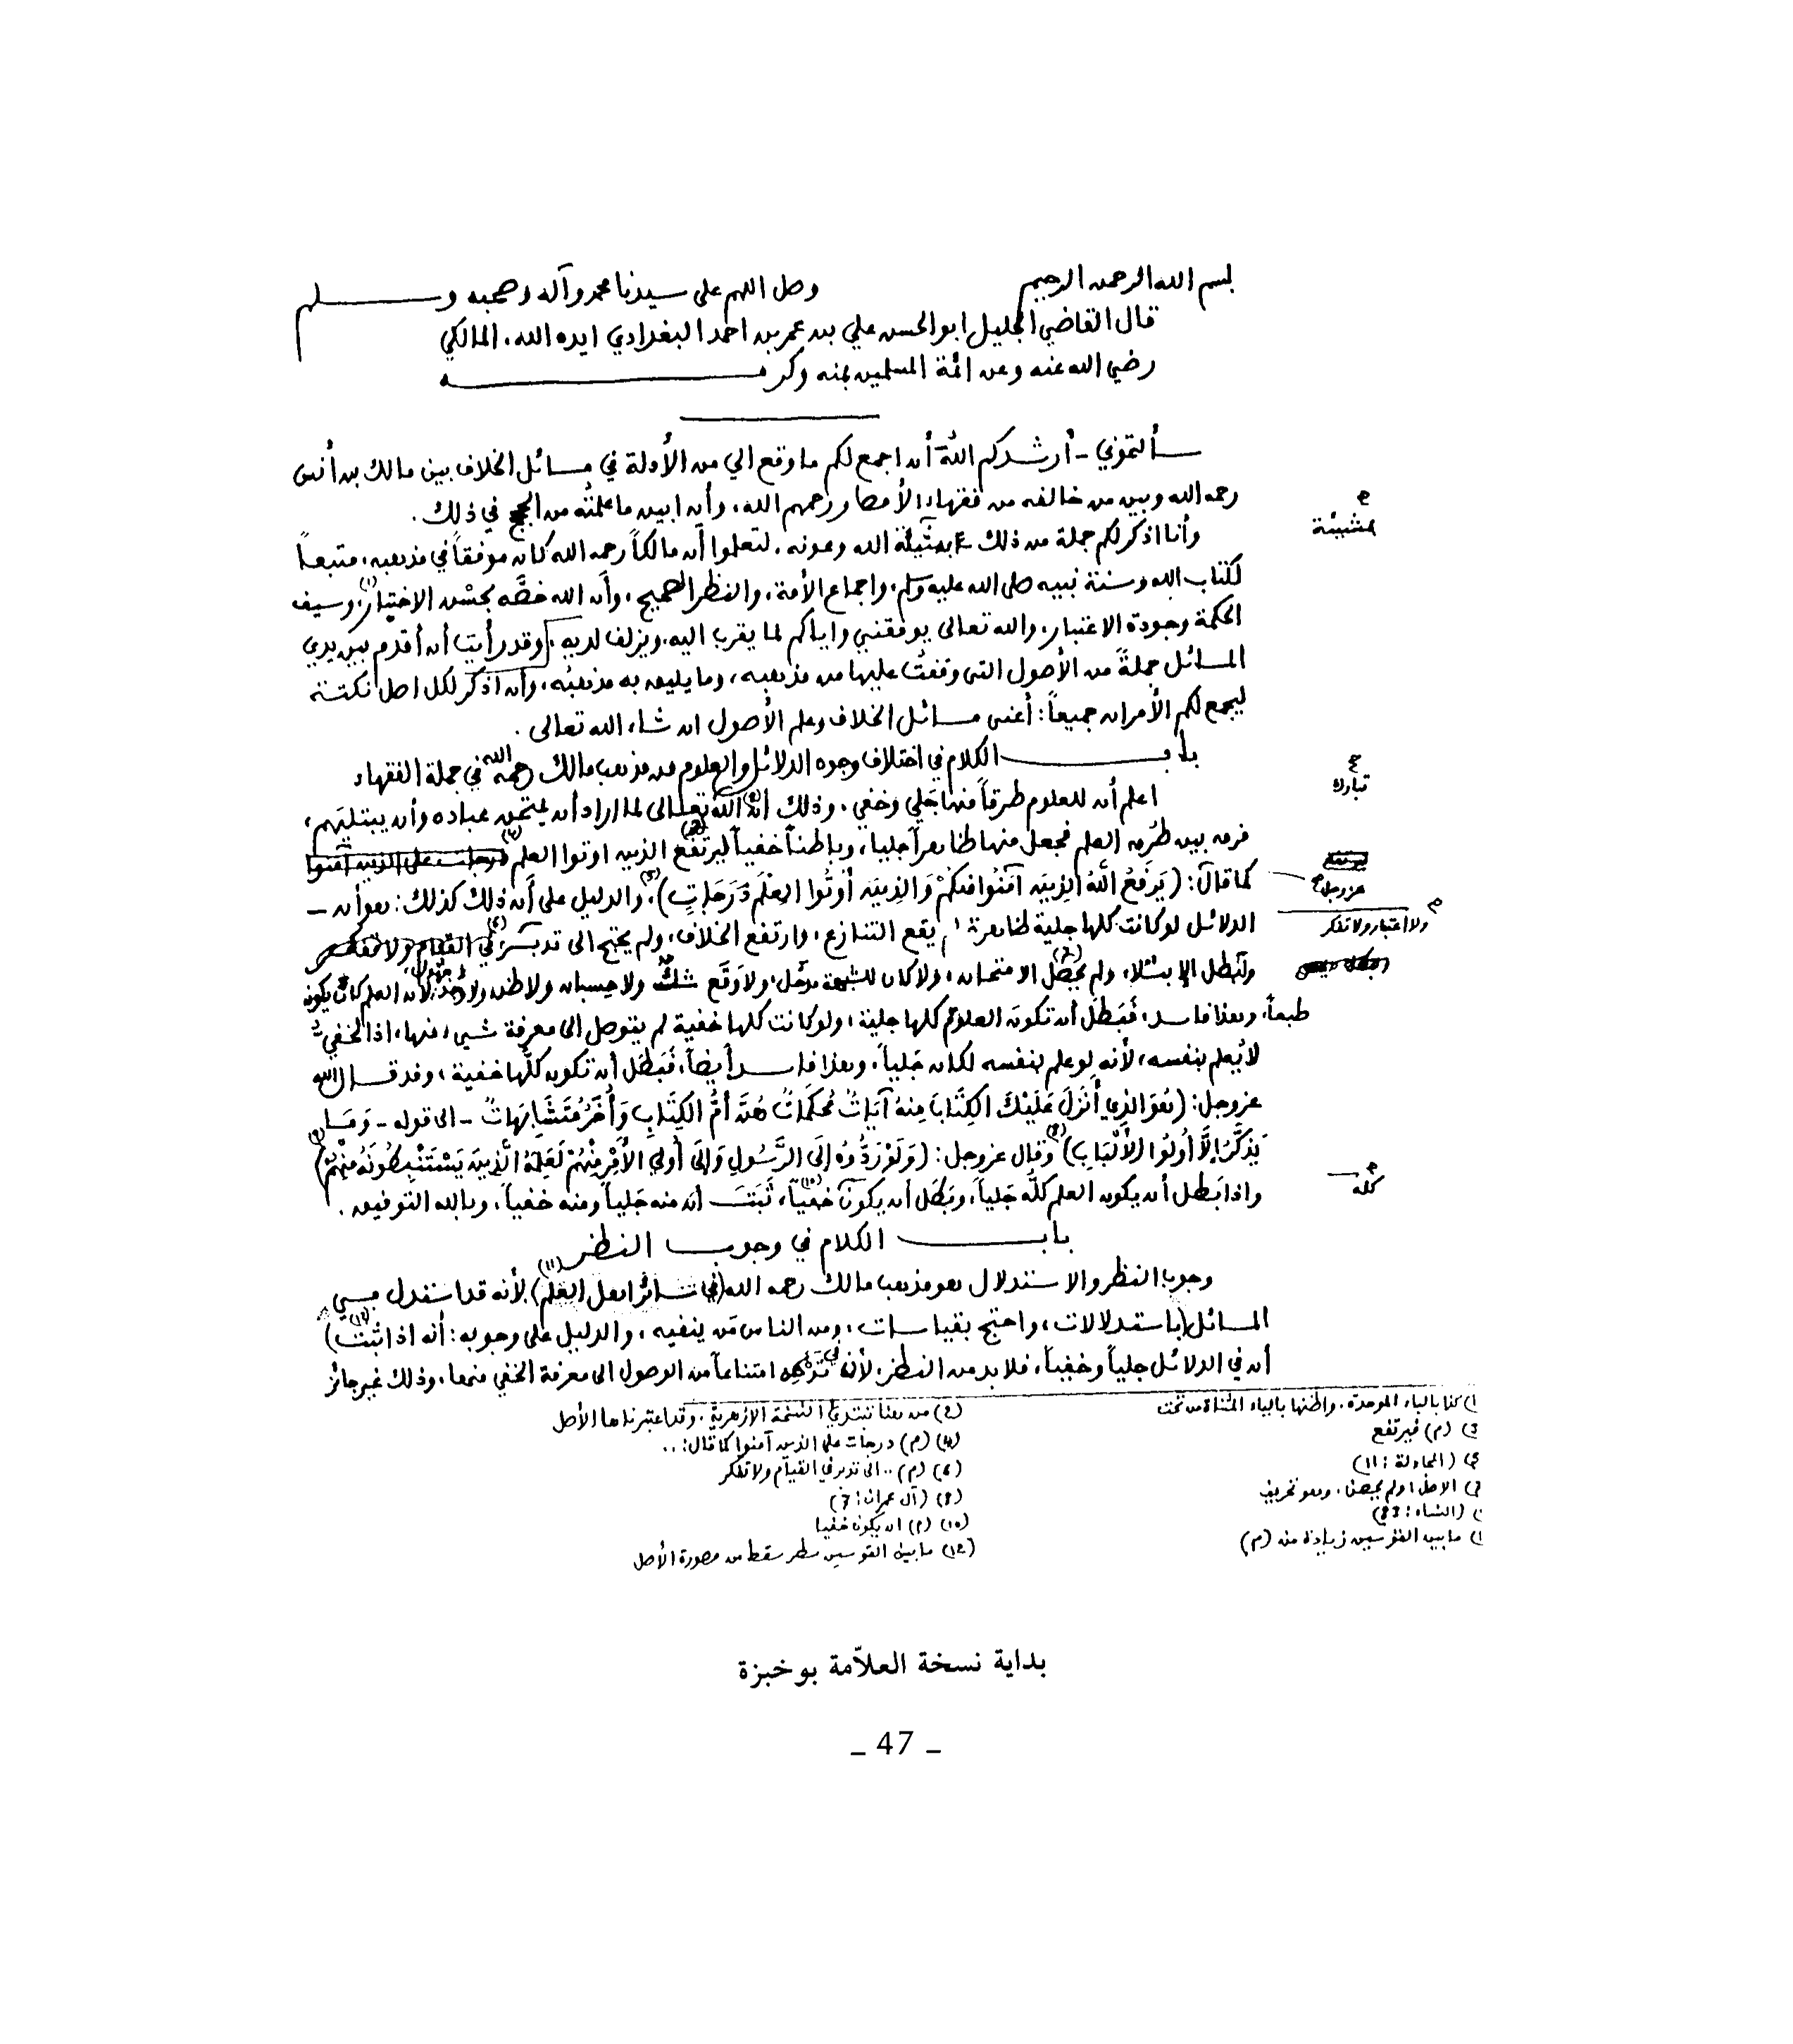 بسم الله الرحمن الرحيم وصل اللهم على سيدنا محمد وآله وصحبه وسلم
قال القاضي الجليل ابو الحسن علي بن عمر بن احمد البغدادي ايده الله، المالكي
رضي الله عنه وعن ائمة المسلمين بمنه وكرمه
سألتموني - أرشدكم الله أن اجمع لكم ما وقع الي من الأدلة في مسائل الخلاف بين مالك بن أنس
رحمه الله وبين من خالفه من فقهاء الأمصار رحمهم الله، وأن ابين ما علمته من الحجج في ذلك.
وأنا اذكر لكم جملة من ذلك بمشيئة الله وعونه، لتعلموا أن مالكاً رحمه الله كان موفقاً في مذهبه، متبعاً
م
بمشيئة
لكتاب الله وسنة نبيه صلى الله عليه وسلم، واجماع الأمة، والنظر الصحيح، وأن الله خصَّه بحسْن الاختيار(١)، وسيف
الحكمة وجودة الاعتبار، والله تعالى يوفقني واياكم لما يقرب اليه، ويزلف لديه. [وقد رأيت أن أقدم بين يدي
المسائل جملةً من الأصول التي وقفتُ عليها من مذهبه، وما يليق به مذهبُه، وأن أذكر لكل اصل نكتة
ليجمع لكم الأمران جميعاً: أعني مسائل الخلاف وعلم الأصول ان شاء الله تعالى.
باب الكلام في اختلاف وجوه الدلائل والعلوم من مذهب مالك رحمه الله في جملة الفقهاء
اعلم أن للعلوم طرقاً منها جَلي وخفي، وذلك أن الله تعالى لما اراد أن يمتحن عباده وأن يبتليَهم،
ع
تبارك
فرق بين طُرُق العلم فجعل منها ظاهراً جليا، وباطناً خفياً ليرتفع(3) الذين اوتوا العلم(4) درجات على الذين آمنوا
كما قال: (يَرفَعُ اللهُ الذِينَ آمَنُوا مِنكُمْ وَالذِينَ أُوتُوا العِلْمَ دَرَجَاتٍ)(5)، والدليل على أن ذلك كذلك: هو أن -
عز وجل م
الدلائل لو كانت كلها جلية ظاهرة لم يقع التنازع، وارتفع الخلاف، ولم يحتج الى تدبر(6) في القيام ولا تفكر
م
ولا اعتبار ولا تفكر
ولبطل الإبتلاء ولم يحصل(7) الامتحان، ولا كان للشبهة مدخل، ولا وَقَع شكٌ ولا حِسبان ولا ظن ولا لأن العلم كان يكون
طبعاً، وهذا فاسد، فَبَطَل أن تكون العلوم كلها جلية، ولو كانت كلها خفية لم يتوصل الى معرفة شيء منها، اذ الخفيُّ
لا يُعلم بنفسه، لأنه لو علم بنفسه لكان جَلياً، وهذا فاسد أيضاً، فَبَطَل أن تكون كلُّها خفية، وقد قال الله
عز وجل: (هُوَ الذِي أَنْزَلَ عَلَيْكَ الكِتَابَ مِنهُ آيَاتٌ مُحكَمَاتٌ هُنَّ أُمُّ الكِتَابِ وَأُخَرُ مُتَشَابِهَاتٌ - الى قوله - وَمَا
يَذَّكَّرُ إِلَّا أُولُوا الأَلْبَابِ)(8) وقال عز وجل: (وَلَوْ رَدُّوهُ إِلَى الرَّسُولِ وَإِلَى أُولِي الأَمْرِ مِنْهُمْ لَعَلِمَهُ الَّذِينَ يَسْتَنْبِطُونَهُ مِنْهُمْ)(9)
واذا بَطل أن يكون العلم كلُّه جَلياً، وبَطَل أن يكون خفياً(١٠)، ثَبَتَ أن منه جَلياً ومنه خفياً، وبالله التوفيق.
م
كله
باب الكلام في وجوب النظر
وجوب النظر والاستدلال هو مذهب مالك رحمه الله (في سائر اهل العلم)(١١) لأنه قد استدل في
المسائل (باستدلالات، واحتج بقياسات، ومن الناس مَن ينفيه، والدليل على وجوبه: أنه اذا ثبت)(١٢)
أن في الدلائل جلياً وخفياً، فلا بد من النظر، لأن في تركه امتناعاً من الوصول الى معرفة الخفي منها، وذلك غير جائز
١) كذا بالباء الموحدة، واظنها بالياء المثناة من تحت
(2) من هنا تبتدئ النسخة الازهرية، وقد اعتبرناها الأصل
3) (م) فيرتفع
(4) (م) درجات على الذين آمنوا كما قال: ..
5) (المجادلة: 11)
(6) (م) .. الى تدبر في القيام ولا تفكر
7) الاصل: ولم يحصنا، وهو تحريف
(8) (آل عمران: 7)
) (النساء: 83)
(١٠) (م) ان يكون خفيا
١) ما بين القوسين زيادة من (م)
(12) ما بين القوسين سطر سقط من مصورة الأصل
بداية نسخة العلاّمة بو خبزة
- 47 -